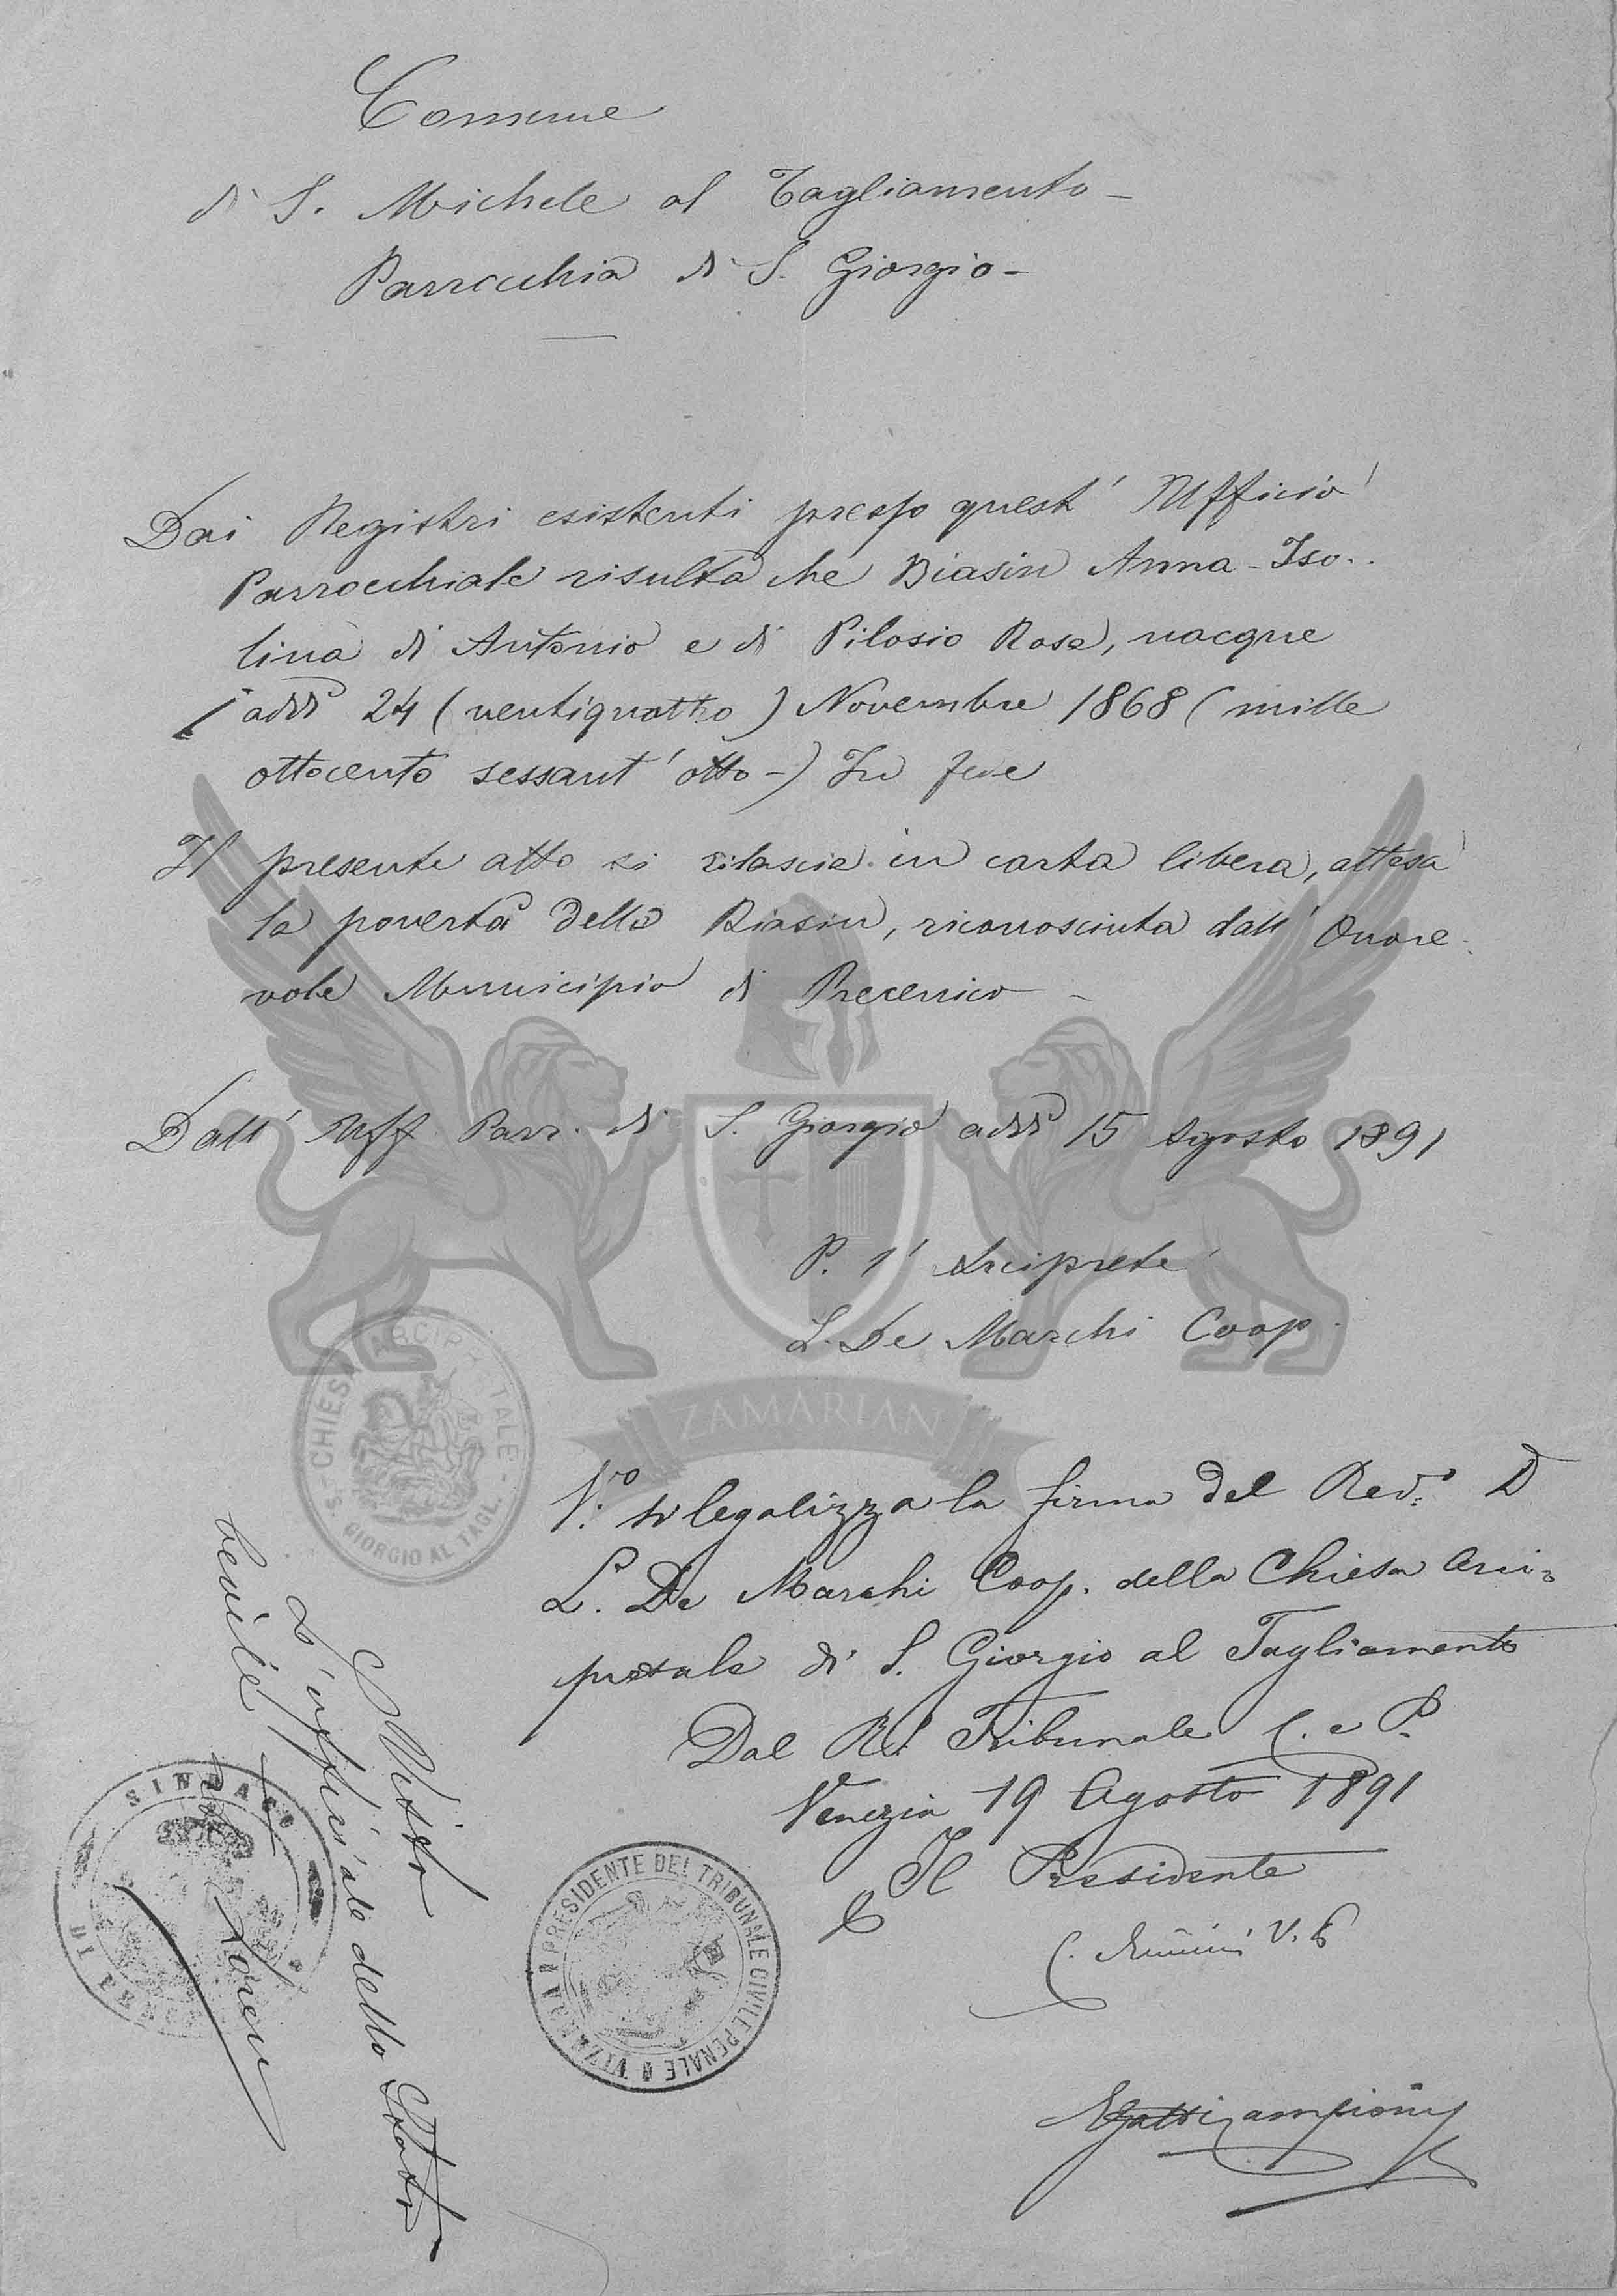 Comune
di S. Michele al Tagliamento -
Parrocchia di S. Giorgio -
Dai Registri esistenti presso quest' Ufficio
Parrocchiale risulta che Biasin Anna - Iso..
lina di Antonio e di Pilosio Rosa, nacque
addì 24 (ventiquattro) Novembre 1868 (mille
ottocento sessant'otto -) In fede
Il presente atto si rilascia in carta libera, attesa
la povertà della Biasin, riconosciuta dall' Onore.
vole Municipio di Precenico -
Dall' Uff. Parr. di S. Giorgio addì 15 Agosto 1891
P. l' Arciprete
L. De Marchi Coop.
ZAMARIAN
CHIESA ARCIPRETALE
S. GIORGIO AL TAGL.
V.º si legalizza la firma del Rev.º D
L. De Marchi Coop. della Chiesa Arci=
pretale di S. Giorgio al Tagliamento
Dal R. Tribunale C. e P.
Venezia 19 Agosto 1891
Il Presidente
C. V. P.
PRESIDENTE DEL TRIBUNALE CIVILE PENALE VENEZIA
Visto
L'ufficiale dello Stato
civile
SINDACO
DI PREC